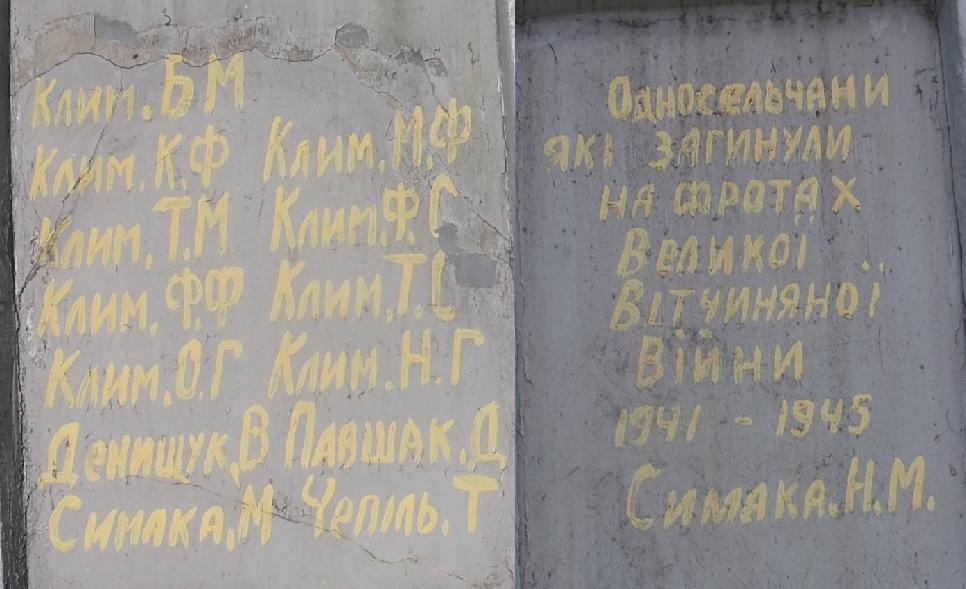 Клим.БМ
Клим.К.Ф Клим.М.Ф
Клим.Т.М Клим.Ф.С
Клим.Ф.Ф Клим.Т.С
Клим.О.Г Клим.Н.Г
Денищук,В Павшак.Д
Симака.М Чепіль.Т
Односельчани
які загинули
на фротах
Великої
Вітчиняної
Війни
1941 - 1945
Симака.Н.М.